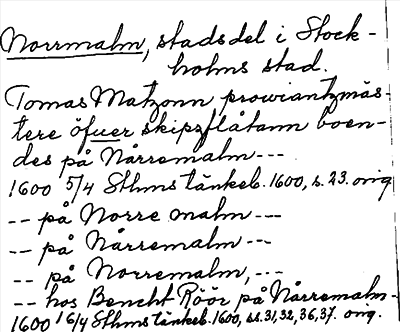 Norrmalm, stadsdel i Stock-
holms stad.
Tomas Matzonn prowiantzmäs-
tere öfuer skipzflåtann boen-
des på Nårremalm ---
1600 5/4 Sthms tänkeb. 1600, s. 23. orig
-- på Norre malm ---
-- på Nårremalm ---
-- på Norremalm, ---
-- hos Bencht Röör på Nårremalm-
1600 16/4 Sthms tänkeb. 1600, ss. 31, 32, 36, 37. orig.